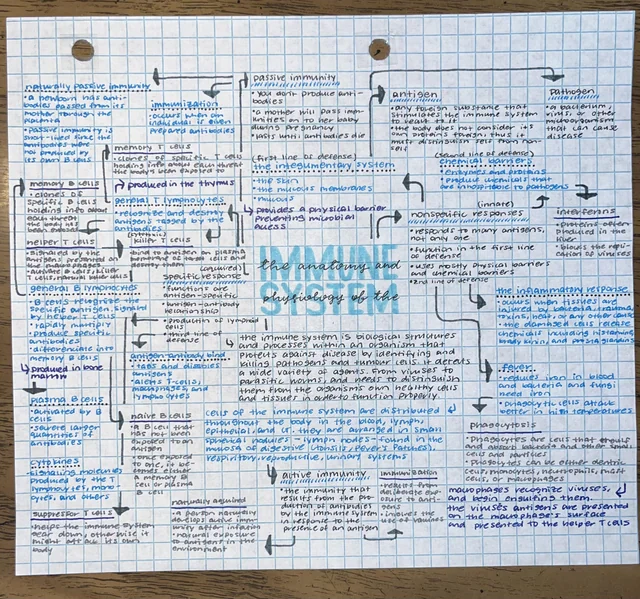 naturally passive immunity
• a newborn has anti-
bodies passed from its
mother through the
placenta
• passive immunity is
short-lived since the
antibodies were
produced by
its own B cell
immunization
• occurs when an
individual is given
prepared antibodies
passive immunity
• you don't produce anti-
bodies
• a mother will pass imm-
unities on to her baby
during pregnancy
• lasts until antibodies die
antigen
• any foreign substance that
stimulates the immune system
to react to it
• the body does not consider its
own proteins foreign thus it
must distinguish self from non-
self
pathogen
• a bacterium,
virus or other
microorganism
that can cause
disease
memory T cells
• clones of specific T cells
holding info about each threat
the body's been exposed to
produced in the thymus
(first line of defense)
the integumentary system
• the skin
• the mucous membranes
• mucous
provides a physical barrier
preventing microbial
access
(second line of defense)
chemical barriers
• enzymes and proteins
• produce chemicals that
are inhospitable to pathogens
memory B cells
• clones of
specific B cells
holding info about
each threat
the body has
been exposed to
general T lymphocytes
• recognize and destroy
antigens tagged by
antibodies
killer T cells
• bind to antigen on plasma
membrane of target cells and
destroy them
helper T cells
• signaled by the
antigens presented on
the macrophages
• activate B cells, killer
T cells
(innate)
nonspecific responses
• responds to many antigens,
not only one
• function in the first line
of defense
• uses mostly physical barriers
and chemical barriers
• 2nd line of defense
interferons
• proteins
produced in the
liver
• blocks the repli-
cation of viruses
(acquired)
specific response
• functions are
antigen-specific
• antigen-antibody
relationship
• production of lymphoid
cells
• third line of
defense
IMMUNE
the anatomy and
physiology of the
SYSTEM
general B lymphocytes
• B cells recognize the
specific antigen signaled
by helper T cells
• rapidly multiply
• produce specific
antibodies
• differentiate into
memory B cells
produced in bone
marrow
the inflammatory response
• occurs when tissues are
injured by bacteria, trauma,
toxins, heat, or any other cause
• the damaged cells release
chemicals including histamine,
bradykinin, and prostaglandins
antigen-antibody bind
• tags and disables
antigens
• alerts T-cells,
macrophages, and
lymphocytes
• the immune system is biological structures
and processes within an organism that
protects against disease by identifying and
killing pathogens and tumour cells. it detects
a wide variety of agents, from viruses to
parasitic worms, and needs to distinguish
them from the organisms own healthy cells
and tissues in order to function properly.
fever
• reduces iron in blood
and bacteria and fungi
need iron
• phagocytic cells attack
better in high temperatures
plasma B cells
• activated by B
cells
• secrete larger
quantities of
antibodies
naive B cells
• a B cell that
has not been
exposed to an
antigen
• once exposed
to one, it be-
comes either
a memory B
cell or plasma
B cell
cells of the immune system are distributed
throughout the body in the blood, lymph,
epithelial and c.t. they are arranged in small
spherical nodules - lymph nodes - found in the
mucosa of digestive (tonsils, Peyer's Patches),
respiratory, reproductive, urinary systems
phagocytosis
• phagocytes are cells that engulf
and absorb bacteria and other small
cells and particles
• phagocytes can be either dendritic
cells, monocytes, neutrophils, mast
cells, or macrophages
cytokines
signaling molecules
produced by the T
lymphocytes, mono-
cytes, and others
suppressor T cells
• helps the immune system
gear down, otherwise it
might attack its own
body
naturally acquired
• a person naturally
develops active imm-
unity after infection
• natural exposure
to antigens in the
environment
active immunity
• the immunity that
results from the pro-
duction of antibodies
by the immune system
in response to the
presence of an antigen
immunization
• results from
deliberate exp-
osure to anti-
gens
• involves the
use of vaccines
macrophages recognize viruses,
and begin engulfing them.
the viruses antigens are presented
on the macrophage's surface
and presented to the helper T cells